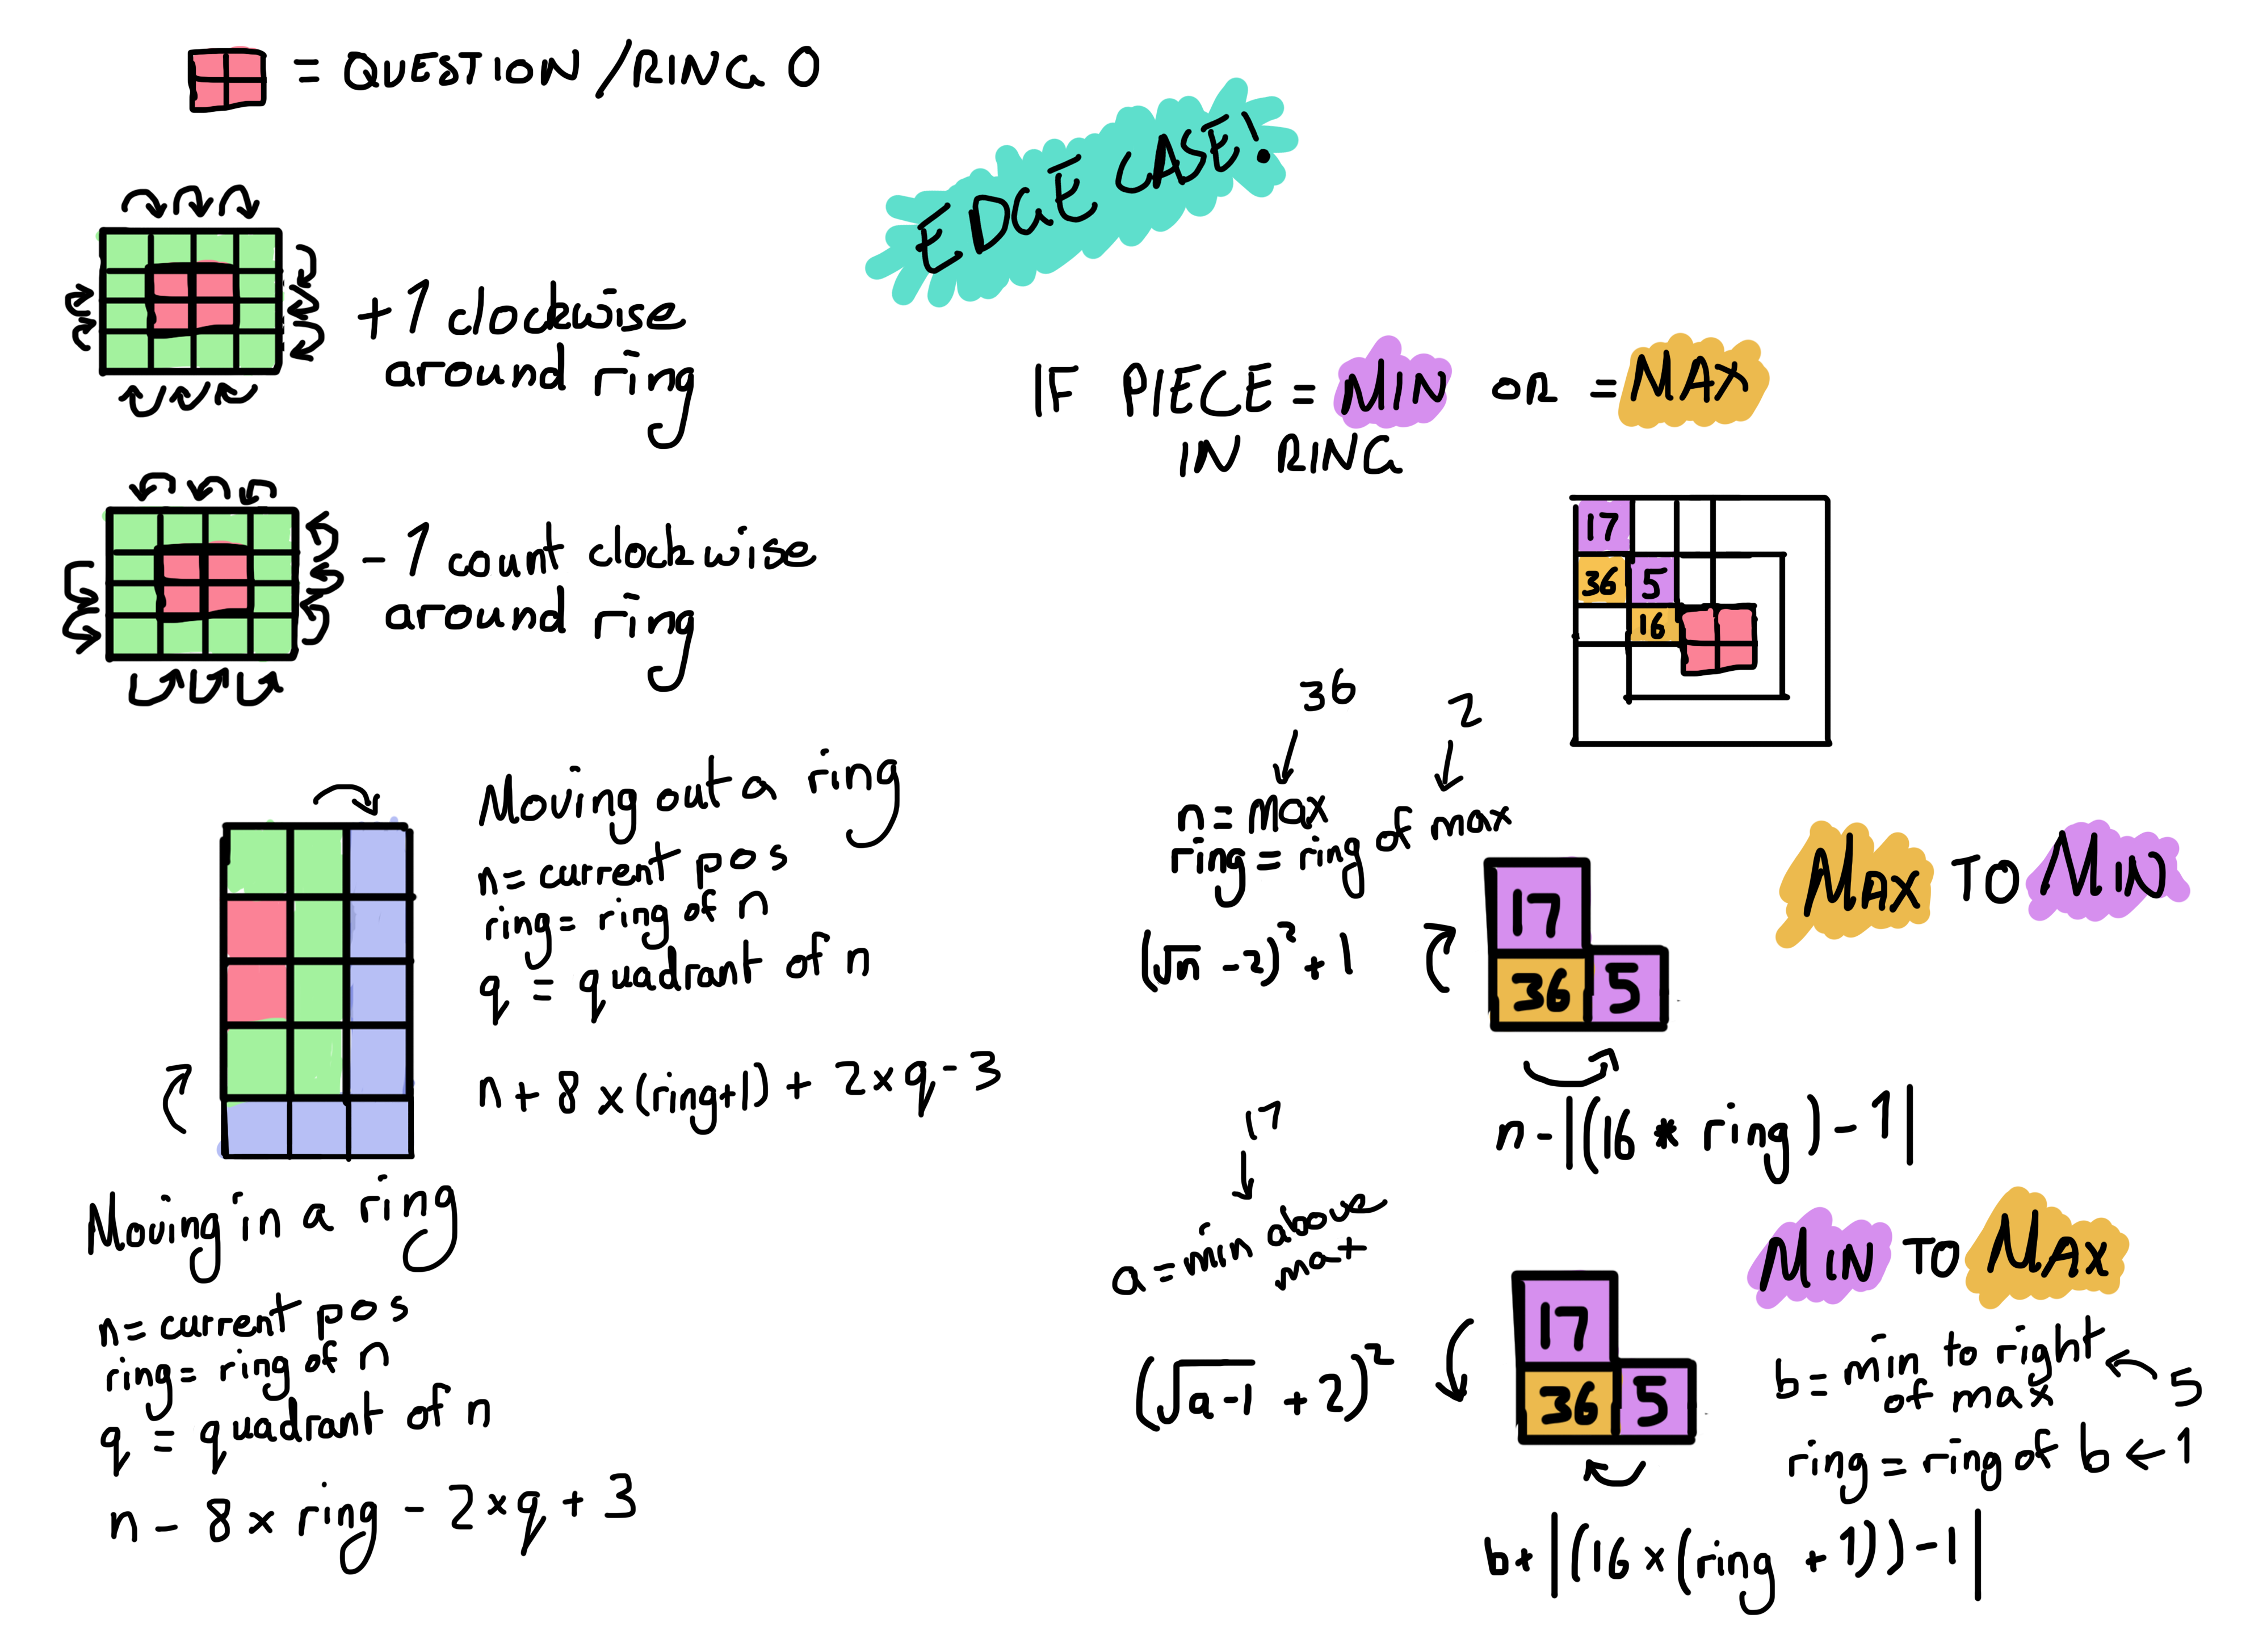 = QUESTION / RING 0
+1 clockwise
around ring
-1 count clockwise
around ring
Moving out a ring
n= current pos
ring= ring of n
q = quadrant of n
n + 8 x (ring+1) + 2xq-3
Moving in a ring
n= current pos
ring= ring of n
q = quadrant of n
n - 8 x ring - 2xq + 3
EDGE CASE!
IF PIECE = MIN OR = MAX
IN RING
17
36 5
16
36 2
n= max
ring = ring of max
(√n -2)² + 1
17
36 5
MAX TO MIN
n-|(16 * ring)-1|
17
a = min above
max
(√a-1 + 2)²
17
36 5
MIN TO MAX
b= min to right
of max
5
ring = ring of b ← 1
b+|(16x(ring +1))-1|